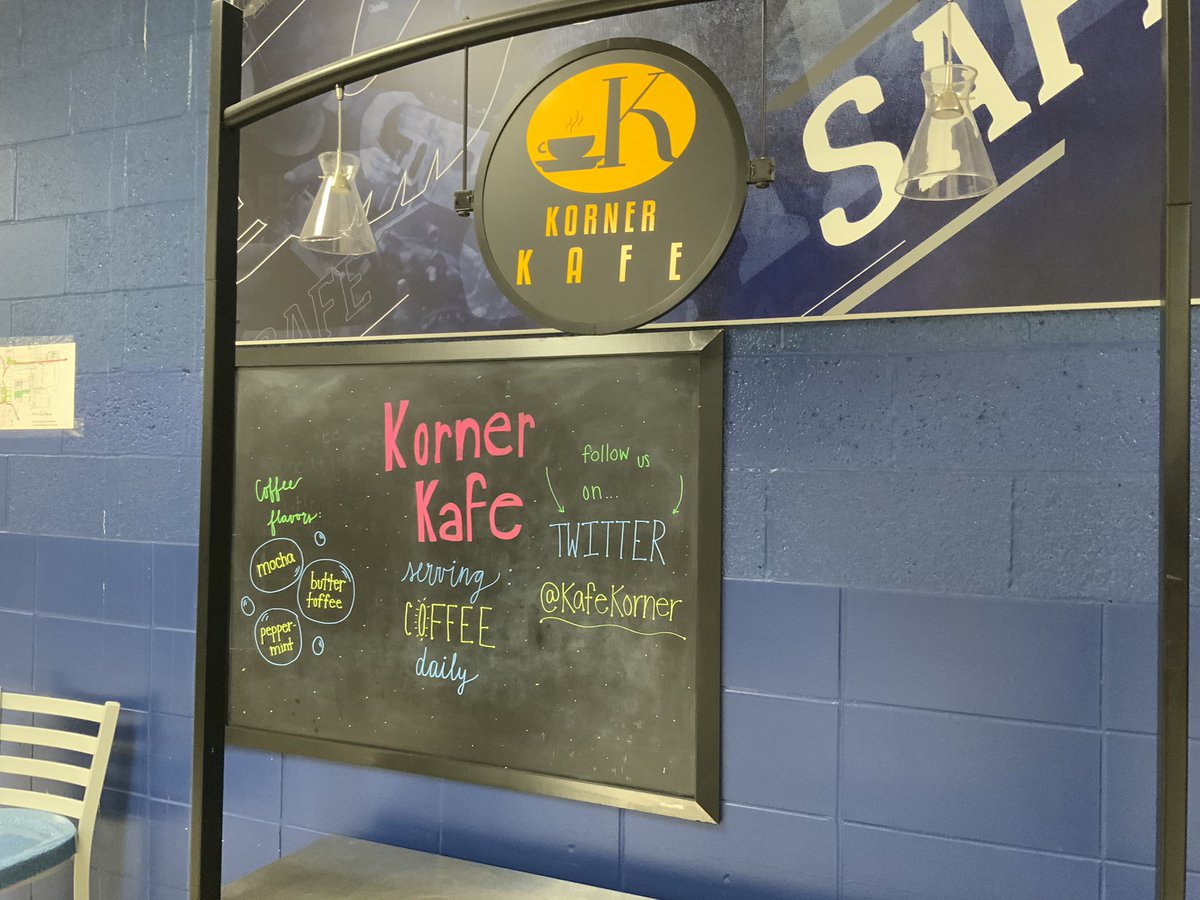 SAF
SAFE
K
KORNER
KAFE
Korner
Kafe
serving:
COFFEE
daily
Coffee
flavors:
mocha
butter
toffee
pepper-
mint
follow us
on...
TWITTER
@KafeKorner